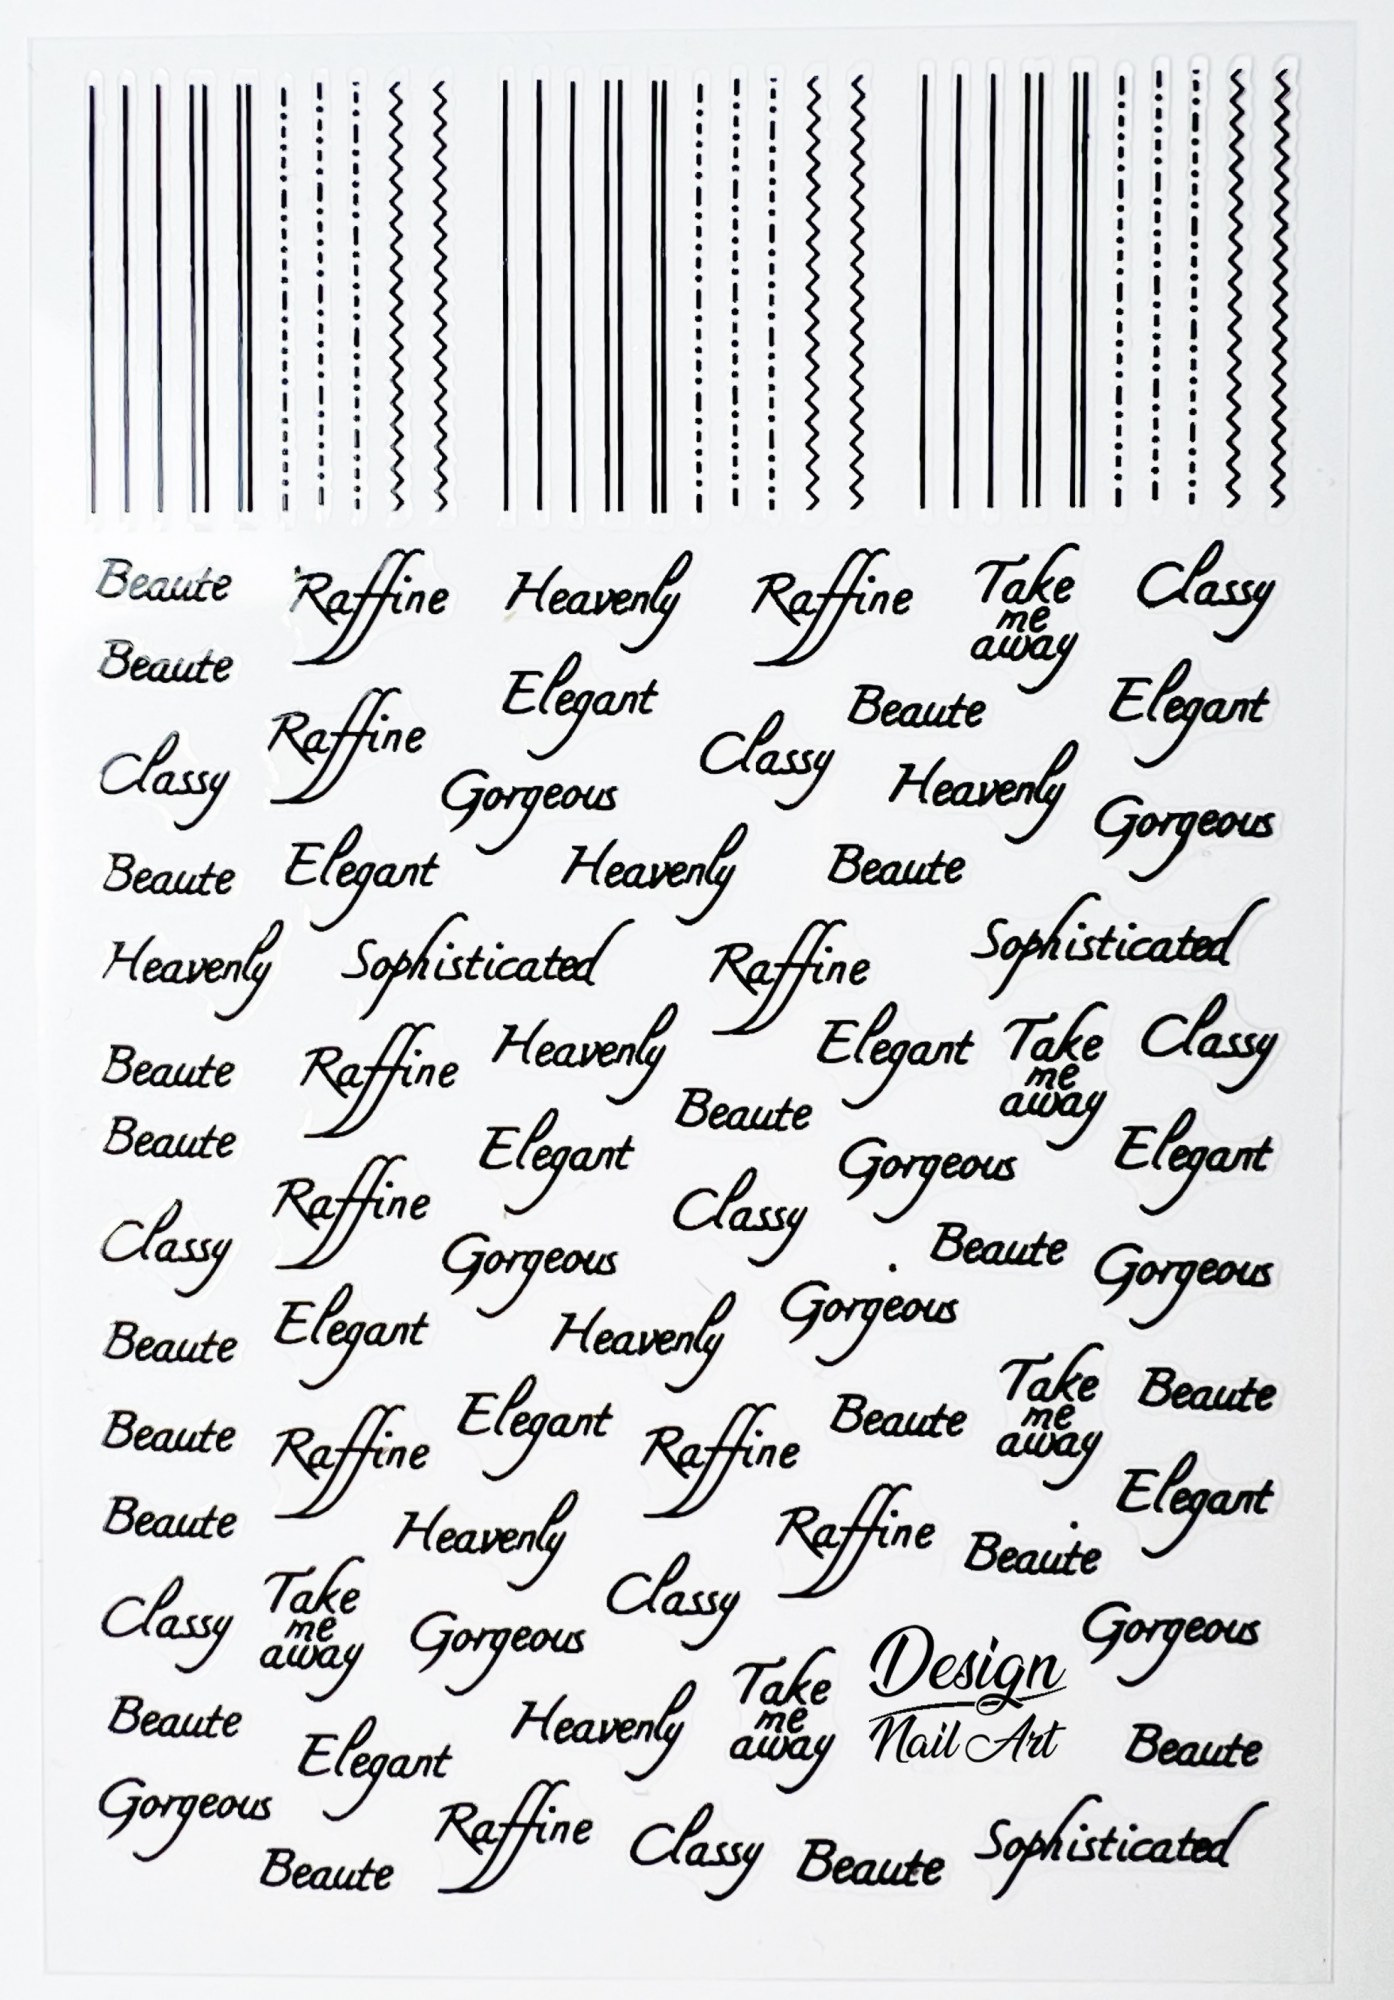 Beaute Raffine Heavenly Raffine Take me away Classy
Beaute Elegant Beaute Elegant
Raffine Classy
Classy Gorgeous Heavenly Gorgeous
Beaute Elegant Heavenly Beaute
Heavenly Sophisticated Raffine Sophisticated
Beaute Raffine Heavenly Elegant Take me away Classy
Beaute Elegant Beaute Gorgeous Elegant
Raffine Classy
Classy Gorgeous Beaute Gorgeous
Beaute Elegant Heavenly Gorgeous
Take me away Beaute
Beaute Raffine Elegant Raffine Beaute
Beaute Heavenly Raffine Beaute Elegant
Classy Take me away Gorgeous Classy Gorgeous
Design
Nail Art
Beaute Elegant Heavenly Take me away Beaute
Gorgeous Raffine Classy Sophisticated
Beaute Beaute